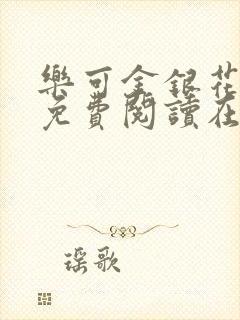 樂可金銀花
免費閱讀在
瑶歌